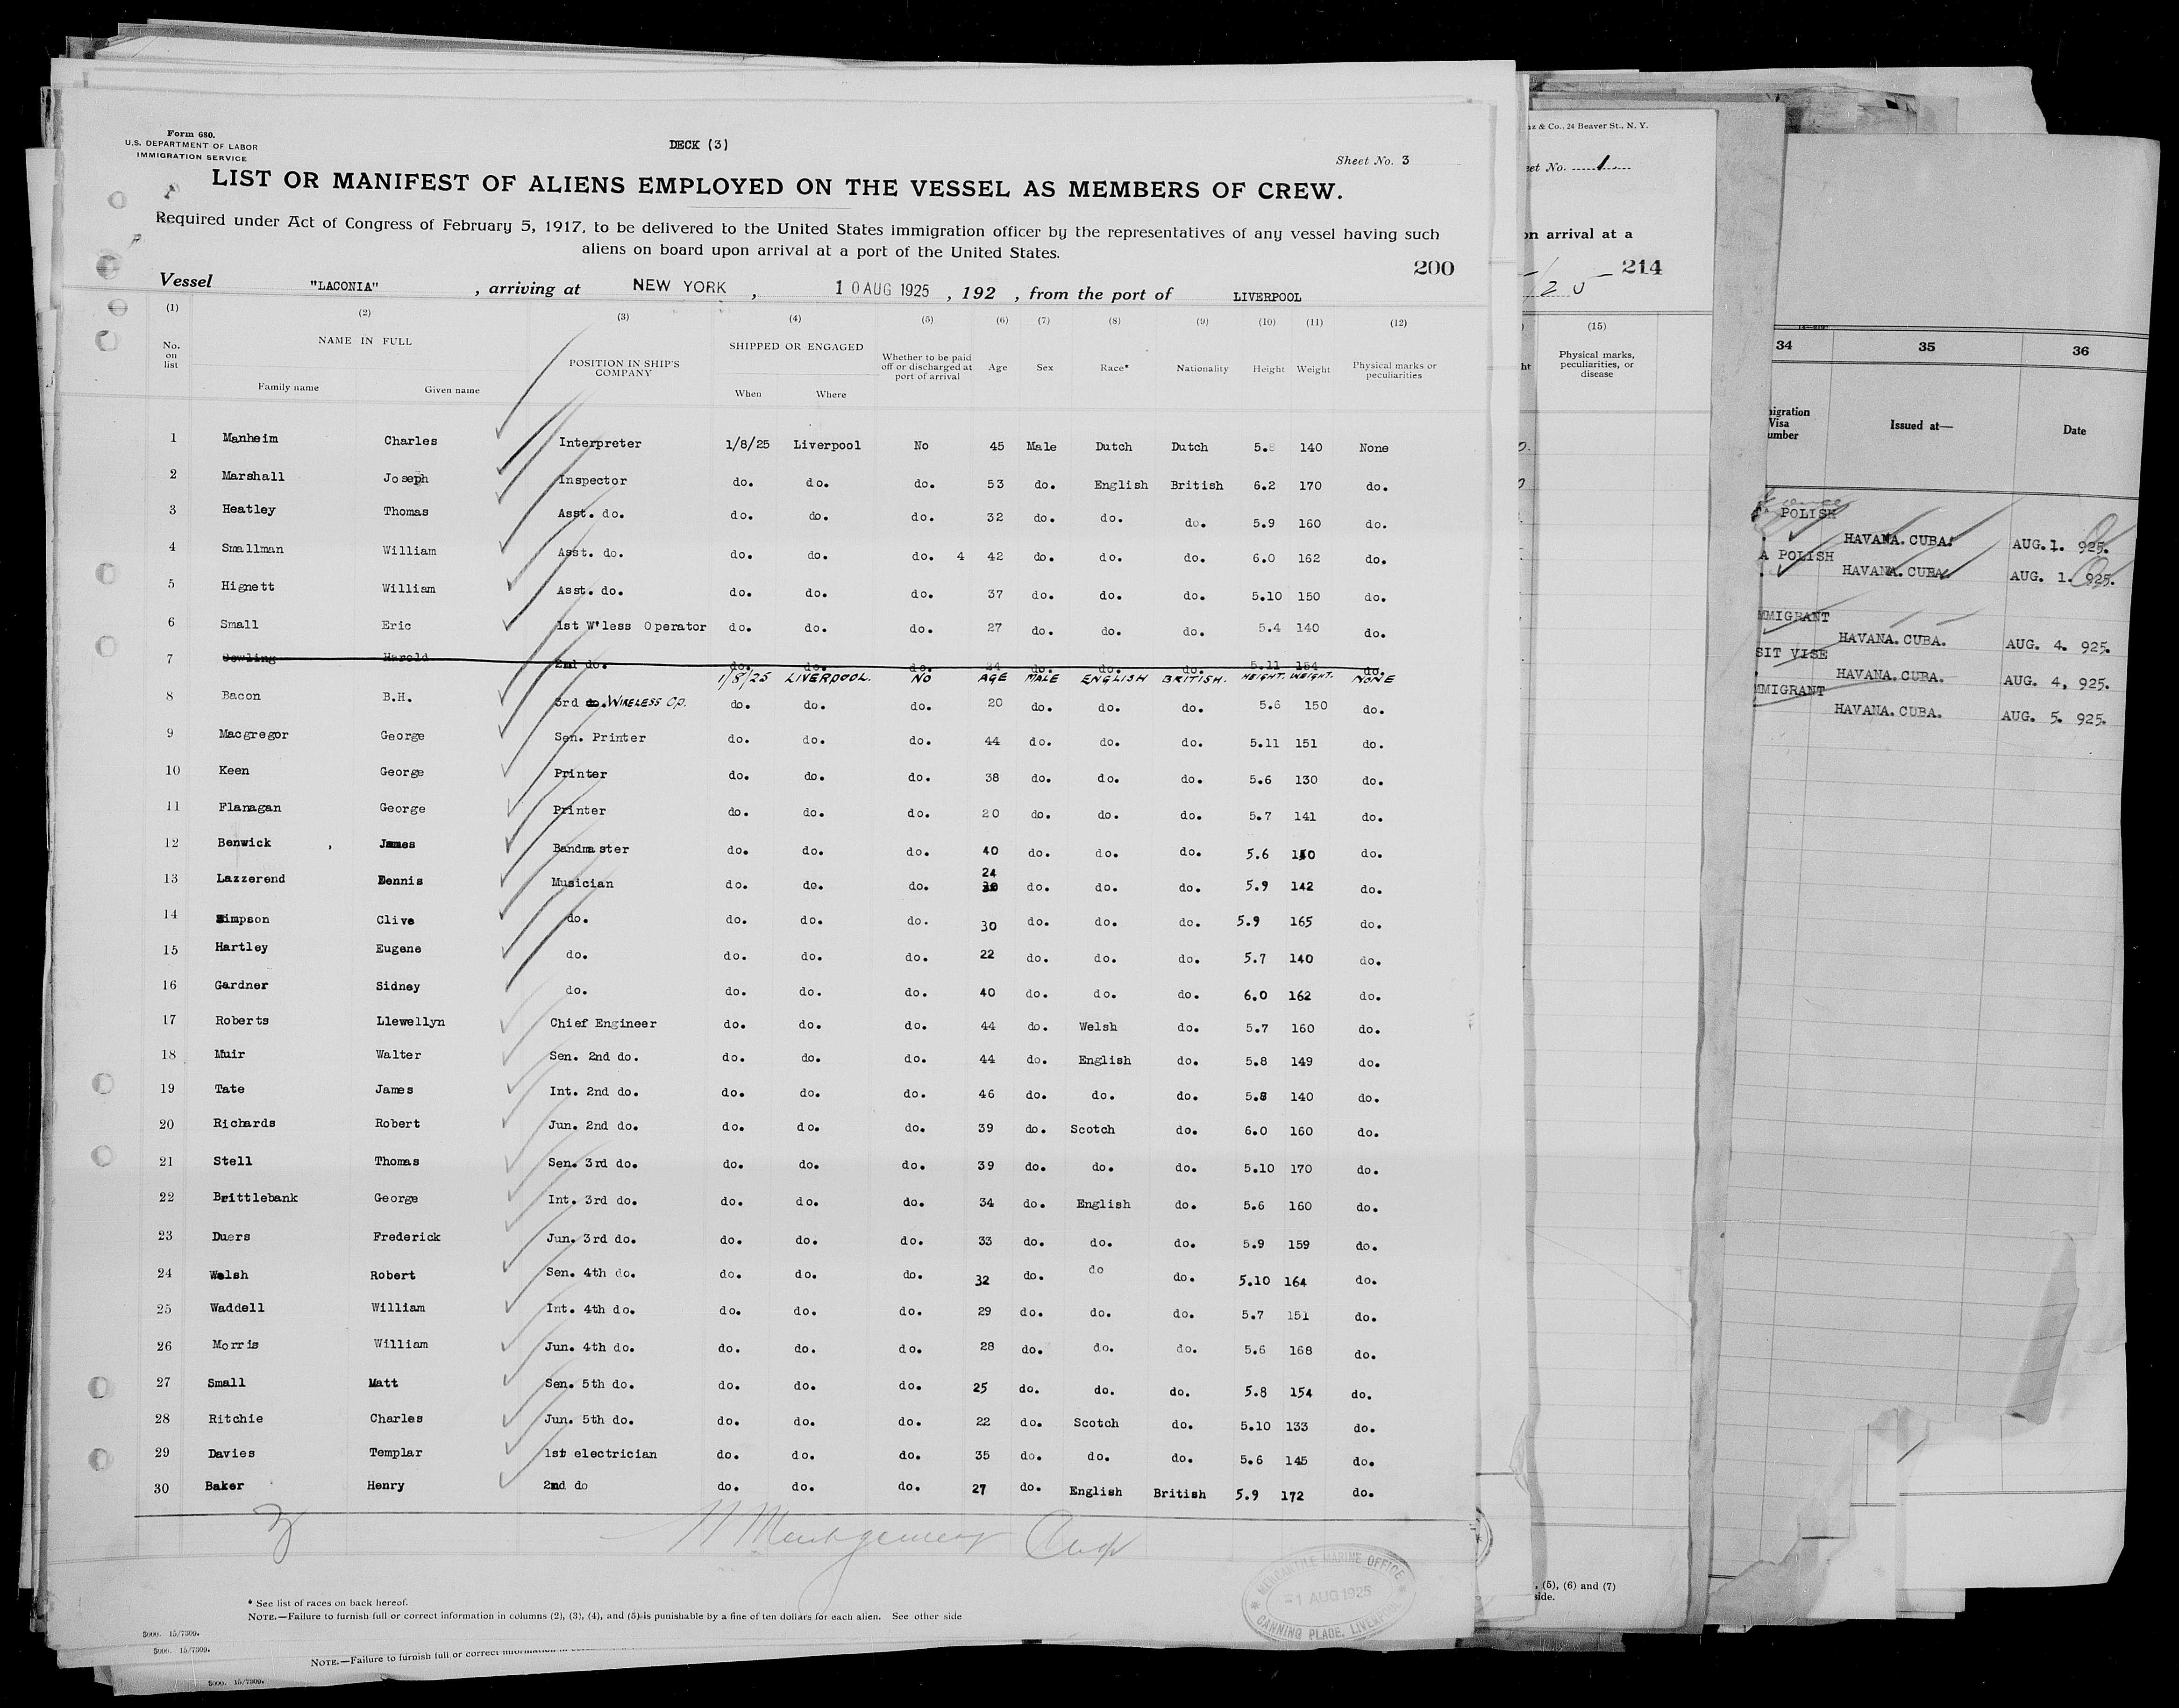 Form 680.
U.S. DEPARTMENT OF LABOR
IMMIGRATION SERVICE
DECK (3)
Sheet No. 3
LIST OR MANIFEST OF ALIENS EMPLOYED ON THE VESSEL AS MEMBERS OF CREW.
Required under Act of Congress of February 5, 1917, to be delivered to the United States immigration officer by the representatives of any vessel having such
aliens on board upon arrival at a port of the United States.
200
Vessel "LACONIA" , arriving at NEW YORK , 10 AUG 1925 , 192 , from the port of LIVERPOOL
(1) (2) (3) (4) (5) (6) (7) (8) (9) (10) (11) (12)
No. on list NAME IN FULL Family name Given name POSITION IN SHIP'S COMPANY SHIPPED OR ENGAGED When Where Whether to be paid off or discharged at port of arrival Age Sex Race* Nationality Height Weight Physical marks or peculiarities
1 Manheim Charles Interpreter 1/8/25 Liverpool No 45 Male Dutch Dutch 5.8 140 None
2 Marshall Joseph Inspector do. do. do. 53 do. English British 6.2 170 do.
3 Heatley Thomas Asst. do. do. do. do. 32 do. do. do. 5.9 160 do.
4 Smallman William Asst. do. do. do. do. 4 42 do. do. do. 6.0 162 do.
5 Hignett William Asst. do. do. do. do. 37 do. do. do. 5.10 150 do.
6 Small Eric 1st W'less Operator do. do. do. 27 do. do. do. 5.4 140 do.
7 Dowling Harold 2nd do. do. do. do. 24 do. do. do. 5.11 154 do.
1/8/25 LIVERPOOL. NO AGE MALE ENGLISH BRITISH. HEIGHT. WEIGHT. NONE
8 Bacon B.H. 3rd do. WIRELESS OP. do. do. do. 20 do. do. do. 5.6 150 do.
9 Macgregor George Sen. Printer do. do. do. 44 do. do. do. 5.11 151 do.
10 Keen George Printer do. do. do. 38 do. do. do. 5.6 130 do.
11 Flanagan George Printer do. do. do. 20 do. do. do. 5.7 141 do.
12 Benwick , James Bandmaster do. do. do. 40 do. do. do. 5.6 do.
13 Lazzerend Dennis Musician do. do. do. 24 30 do. do. do. 5.9 142 do.
14 Simpson Clive do. do. do. do. 30 do. do. do. 5.9 165 do.
15 Hartley Eugene do. do. do. do. 22 do. do. do. 5.7 140 do.
16 Gardner Sidney do. do. do. do. 40 do. do. do. 6.0 162 do.
17 Roberts Llewellyn Chief Engineer do. do. do. 44 do. Welsh do. 5.7 160 do.
18 Muir Walter Sen. 2nd do. do. do. do. 44 do. English do. 5.8 149 do.
19 Tate James Int. 2nd do. do. do. do. 46 do. do. do. 5.8 140 do.
20 Richards Robert Jun. 2nd do. do. do. do. 39 do. Scotch do. 6.0 160 do.
21 Stell Thomas Sen. 3rd do. do. do. do. 39 do. do. do. 5.10 170 do.
22 Brittlebank George Int. 3rd do. do. do. do. 34 do. English do. 5.6 160 do.
23 Duers Frederick Jun. 3rd do. do. do. do. 33 do. do. do. 5.9 159 do.
24 Walsh Robert Sen. 4th do. do. do. do. 32 do. do do. 5.10 164 do.
25 Waddell William Int. 4th do. do. do. do. 29 do. do. do. 5.7 151 do.
26 Morris William Jun. 4th do. do. do. do. 28 do. do. do. 5.6 168 do.
27 Small Matt Sen. 5th do. do. do. do. 25 do. do. do. 5.8 154 do.
28 Ritchie Charles Jun. 5th do. do. do. do. 22 do. Scotch do. 5.10 133 do.
29 Davies Templar 1st electrician do. do. do. 35 do. do. do. 5.6 145 do.
30 Baker Henry 2nd do do. do. do. 27 do. English British 5.9 172 do.
Montgomery
MERCANTILE MARINE OFFICE
-1 AUG 1925
CANNING PLACE, LIVERPOOL
* See list of races on back hereof.
NOTE.—Failure to furnish full or correct information in columns (2), (3), (4), and (5) is punishable by a fine of ten dollars for each alien. See other side
5000. 15/7309.
5000. 15/7309.
NOTE.—Failure to furnish full or correct
5000. 15/7309.
& Co., 24 Beaver St., N. Y.
et No. 1
on arrival at a
214
(15)
Physical marks, peculiarities, or disease
, (5), (6) and (7)
side.
34 35 36
migration Visa umber Issued at— Date
POLISH
HAVANA. CUBA. AUG. 1. 925.
A POLISH
HAVANA. CUBA. AUG. 1. 925.
MMIGRANT
HAVANA. CUBA. AUG. 4. 925.
SIT VISE
HAVANA. CUBA. AUG. 4, 925.
MMIGRANT
HAVANA. CUBA. AUG. 5. 925.